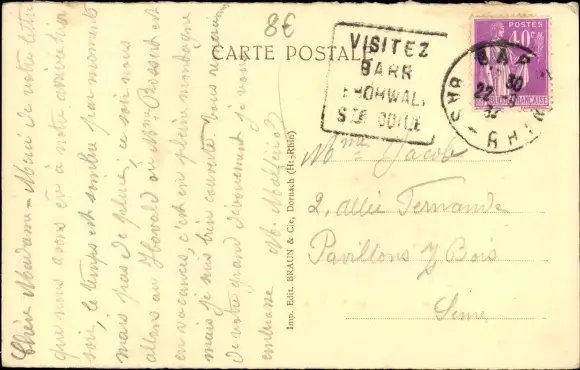 8€
CARTE POSTALE
VISITEZ
BARR
HOHWALD
STE ODILE
POSTES
40c
FRANÇAISE
BARR
30
22 9
BAS-RHIN
Chère Madame - Merci de votre lettre
que nous avons eu à notre arrivée hier
soir, le temps est sombre par moments
mais pas de pluie, ce soir nous
allons au Howald ou Mme Bessert est
en vacances, c'est en pleine montagne
mais je suis bien couverte. Vous remerciant
de votre grand dévouement je vous
embrasse M. Malfeno
Imp. Edit. BRAUN & Cie, Dornach (Ht-Rhin)
Mme Jacob
2, allée Fernande
Pavillons s/ Bois
Seine